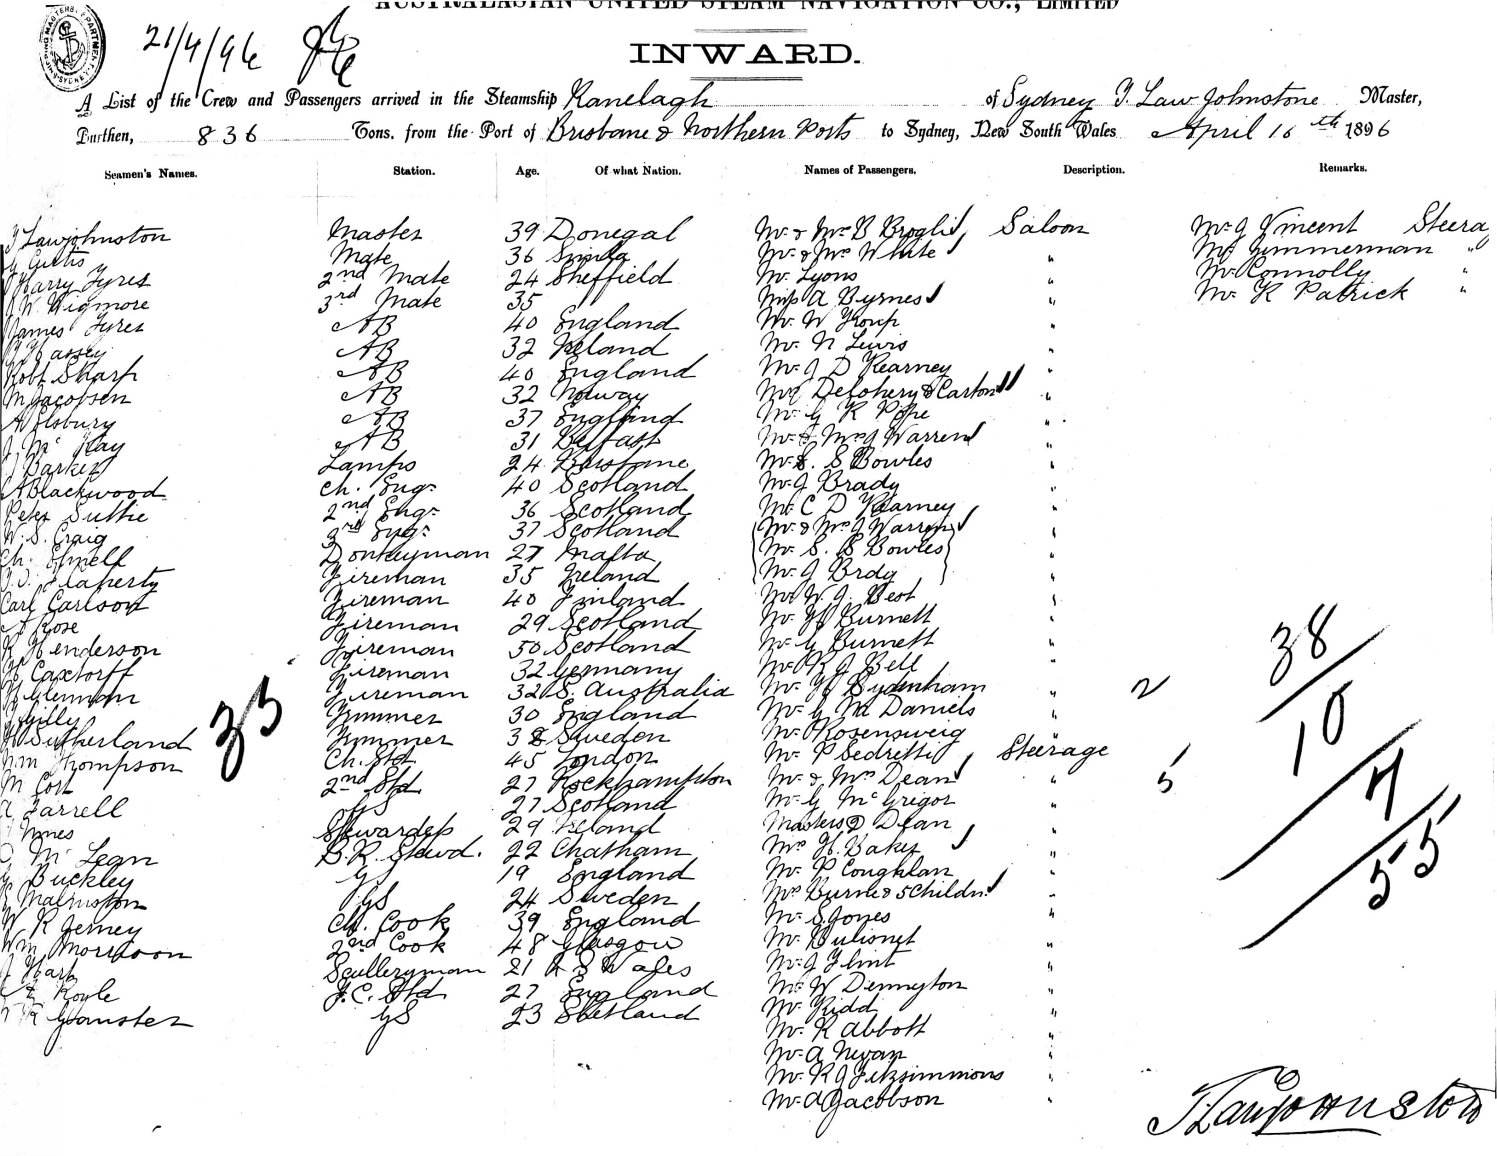 AUSTRALASIAN UNITED STEAM NAVIGATION CO., LIMITED
21/4/96
INWARD.
A List of the Crew and Passengers arrived in the Steamship Ranelagh of Sydney J. Law Johnstone Master,
Burthen, 836 Tons, from the Port of Brisbane & Northern Ports to Sydney, New South Wales April 16th 1896
Seamen's Names. Station. Age. Of what Nation. Names of Passengers. Description. Remarks.
J Lawjohnston Master 39 Donegal Mr & Mrs B Broglis Saloon Mr J Vincent Steera
G Curtis Mate 36 Simla Mr & Mrs White " Mr Zimmerman "
Harry Tyres 2nd Mate 24 Sheffield Mr Lyons " Mr Connolly "
J W Wigmore 3rd Mate 35 Miss A Byrnes " Mr K Patrick "
James Tyres AB 40 England Mr W Troup "
Hassey AB 32 Ireland Mr N Lewis "
Robt Sharp AB 40 England Mr J D Kearney "
M Jacobsen AB 32 Norway Delohery & Carton "
A Elsbury AB 37 England Mr G R Pope "
J McKay AB 31 Belfast Mr & Mrs J Warren "
J Barker Lamps 24 Brisbane Mr E. S Bowles "
A Blackwood Ch. Engr 40 Scotland Mr J Brady "
Peter Suttie 2nd Engr 36 Scotland Mr C D Kearney "
W. S. Craig 3rd Engr 37 Scotland (Mr & Mrs J Warren) "
Ch. Donkeyman 27 Malta (Mr S. B Bowles) "
Flaherty Fireman 35 Ireland (Mr J Brdy) "
Carl Carlson Fireman 40 Finland Mr W. J. Best "
A Rose Fireman 29 Scotland Mr H Burnett "
R Henderson Fireman 50 Scotland Mr G Burnett "
H Caxtorff Fireman 32 Germany Mr R J Bell "
H Glennan Fireman 32 S. Australia Mr H Sydenham " 2
Gilly Trimmer 30 England Mr G McDaniels "
H Sutherland Trimmer 38 Sweden Mr Rosensweig "
Wm Thompson Ch. Std 45 London Mr P Sedretti Steerage
M Cort 2nd Std 27 Rockhampton Mr & Mrs Dean " 5
A Farrell GS 27 Scotland Mr G McGrigor "
Innes Stewardess 29 Ireland Masters Dean "
McLean B. R. Stewd. 22 Chatham Mrs H. Baker "
G Buckley GS 19 England Mr P Coughlan "
Malmston GS 24 Sweden Mrs Burne & 5 Childn "
W R Jerney Ch. Cook 39 England Mr S Jones "
Wm Morrison 2nd Cook 48 Glasgow Mr Bulionet "
J Hart Scullery man 21 N S Wales Mr J Flint "
Royle F. C. Std 27 England Mr W Dennyton "
R Gamster GS 23 Shetland Mr Kidd "
Mr R Abbott "
Mr A Nevan "
Mr R J Fitzsimmons "
Mr A Jacobson "
35
38
10
7
55
J Lawjohnston